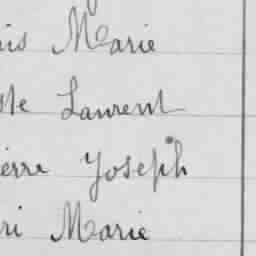 is Marie
te Laurent
ierre Joseph
ri Marie